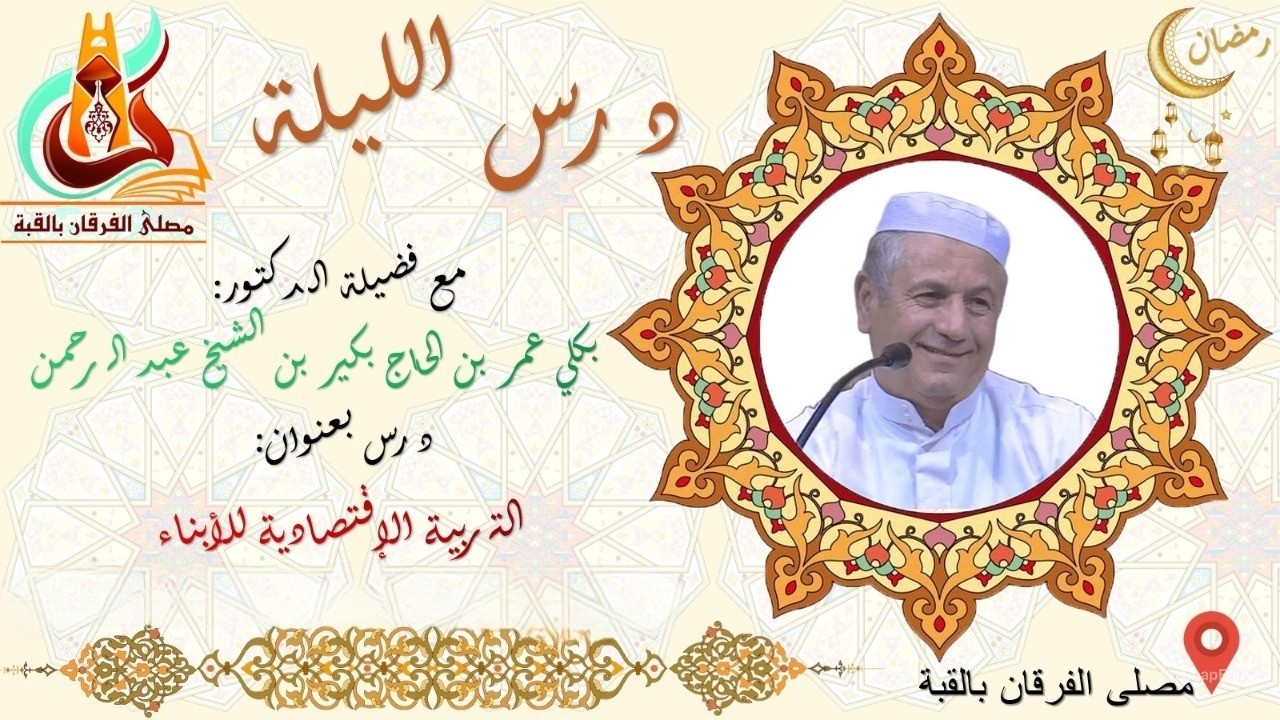 درس الليلة
رمضان
مصلى الفرقان بالقبة
مع فضيلة الدكتور:
بكلي عمر بن الحاج بكير بن الشيخ عبد الرحمن
درس بعنوان:
التربية الإقتصادية للأبناء
مصلى الفرقان بالقبة